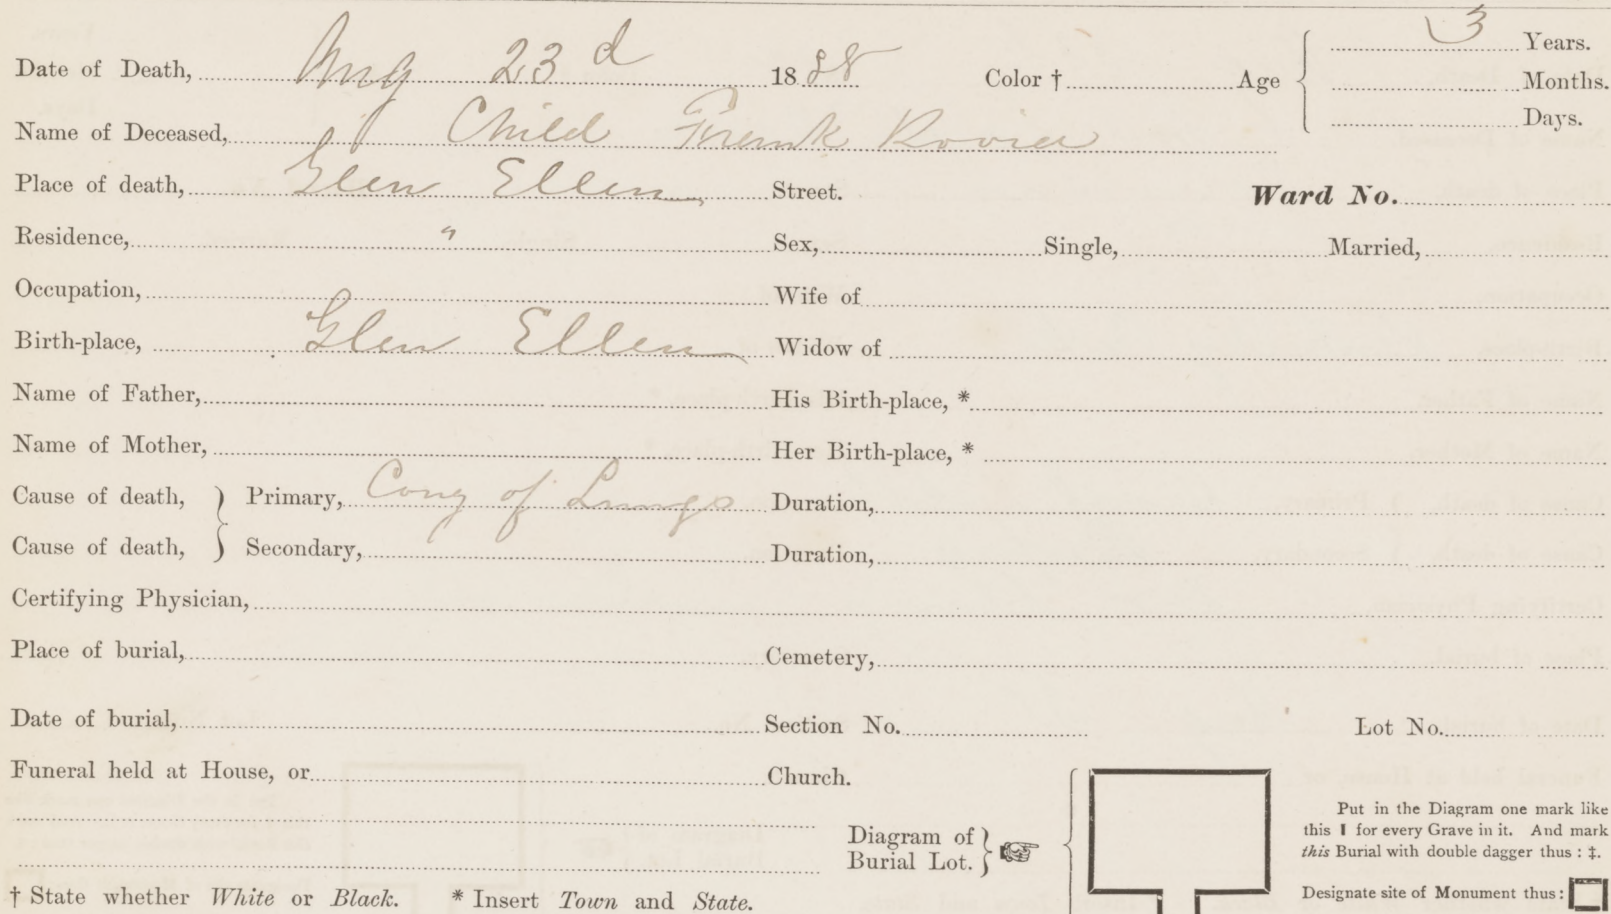 3 Years.
Date of Death, Aug 23d 1888 Color † Age Months.
Days.
Name of Deceased, Child Frank
Place of death, Glen Ellen Street. Ward No.
Residence, " Sex, Single, Married,
Occupation, Wife of
Birth-place, Glen Ellen Widow of
Name of Father, His Birth-place, *
Name of Mother, Her Birth-place, *
Cause of death, Primary, Cong of Lungs Duration,
Cause of death, Secondary, Duration,
Certifying Physician,
Place of burial, Cemetery,
Date of burial, Section No. Lot No.
Funeral held at House, or Church.
Diagram of
Burial Lot.
Put in the Diagram one mark like
this I for every Grave in it. And mark
this Burial with double dagger thus : ‡.
Designate site of Monument thus :
† State whether White or Black. * Insert Town and State.